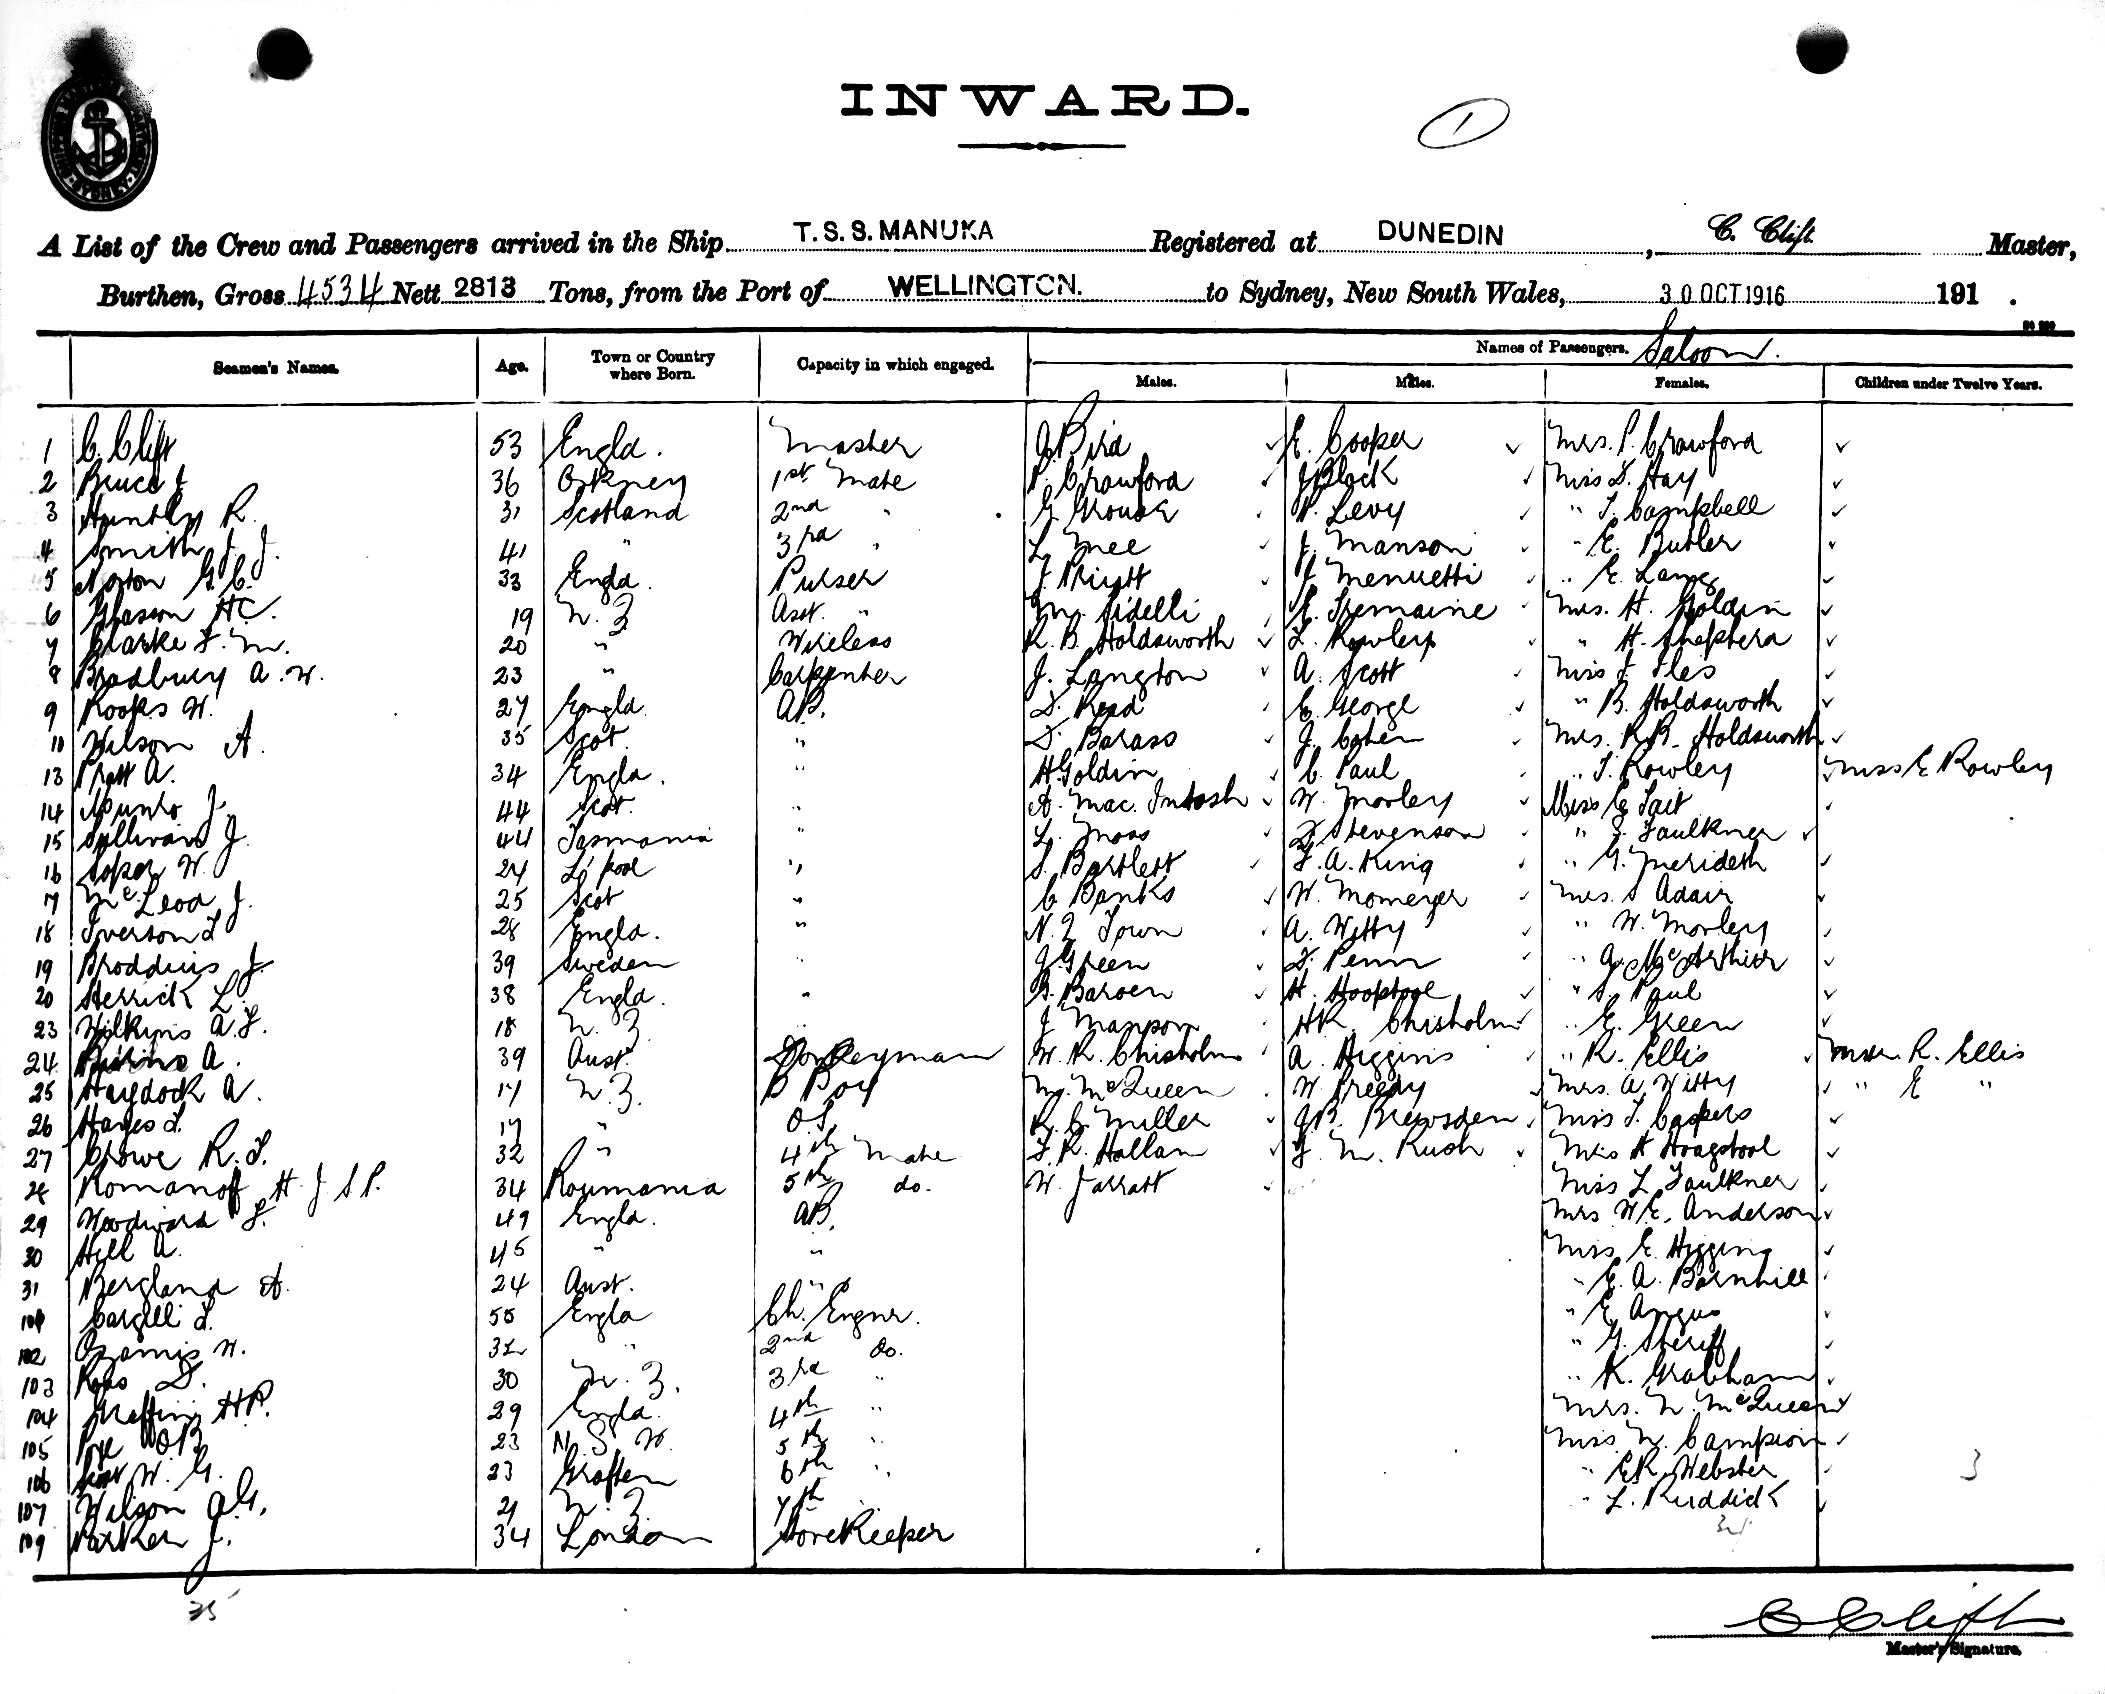 INWARD.
1
A List of the Crew and Passengers arrived in the Ship T.S.S. MANUKA Registered at DUNEDIN , C. Clift Master,
Burthen, Gross 4534 Nett 2813 Tons, from the Port of WELLINGTON. to Sydney, New South Wales, 30 OCT 1916 191 .
Names of Passengers. Saloon.
Seamen's Names. Age. Town or Country where Born. Capacity in which engaged. Males. Males. Females. Children under Twelve Years.
1 C. Clift 53 Engld. Master G Bird E. Cooper Mrs. P. Crawford
2 Bruce J 36 Orkney 1st Mate P. Crawford J Black Miss D. Hay
3 Huntly R. 31 Scotland 2nd " G P. Levy " T. Campbell
4 Smith J. J. 41 " 3rd " L. Mee J. Manson " E. Butler
5 Norton G. C. 33 Engld. Purser J Wright J Menuetti " E. Lang
6 Gleason HC. 19 N. Z Asst. " M. Fidelli E. Tremaine Mrs. H. Goldin
7 Clarke F. M. 20 " Wireless R. B. Holdsworth L. Rowley " H. Shepherd
8 Bradbury A. W. 23 " Carpenter J. Langton A. Scott Miss J Iles
9 Rooks W. 27 Engld. AB. D. Read E. George " B. Holdsworth
10 Wilson A. 35 Scot. " D. Barass J. Cohen Mrs. R.B. Holdsworth
13 Pratt A. 34 Engld. " H Goldin C. Paul " T. Rowley Miss E Rowley
14 Munro J. 44 Scot. " A. Mac. Intosh W. Morley Miss E Tait
15 Sullivan J. 44 Tasmania " L. Moss F Stevenson " Faulkner
16 Soper W. 24 L'pool " S. Bartlett F. A. King " G. Merideth
17 McLeod J. 25 Scot " C Banks W. Momeyer Mrs. S Adair
18 Iverson L 28 Engld. " N. Z Town A. Witty " W. Morley
19 Broddius J. 39 Sweden " J. Green F. Penn " A. McArthur
20 Herrick L. 38 Engld. " B. Baroen H. Hooptool " S. Paul
23 Wilkins A. F. 18 N. Z. " J Manson HR. Chisholm " E. Green
24 A. 39 Aust. Donkeyman W. R. Chisholm A Higgins " R. Ellis R. Ellis
25 Haydock A. 17 N. Z. D Boy M. McQueen W. Preedy Mrs. A. Witty " E "
26 Hayes L. 17 " O.S R. C. Miller J.B. Brewsden Miss T. Caspers
27 Crowe R. F. 32 " 4th Mate F. R. Hallam F. M. Rush Mrs H Hoagstool
28 Romanoff H J S P. 34 Roumania 5th do. W. Jarratt Miss L Faulkner
29 Woodward F. 49 Engld. AB. Mrs W.E. Anderson
30 Hill A. 45 " " Miss E. Higgins
31 Bergland A. 24 Aust. " " E. A. Barnhill
101 Cargill L. 55 Engld Ch. Engnr. " E Angus
102 W. 32 " 2nd do. " G. Sheriff
103 Ross D. 30 N. Z. 3rd " " K. Grabham
104 Griffin HP. 29 Engld. 4th " Mrs. N. McQueen
105 Pye OB 23 N. S. W. 5th " Miss N. Campion
106 W. G. 23 Grafton 6th " " ER. Webster 3
107 Wilson A.G. 21 N. Z. 7th " L. Ruddick
109 Parker J. 34 London Storekeeper 34
35
C Clift
Master's Signature.